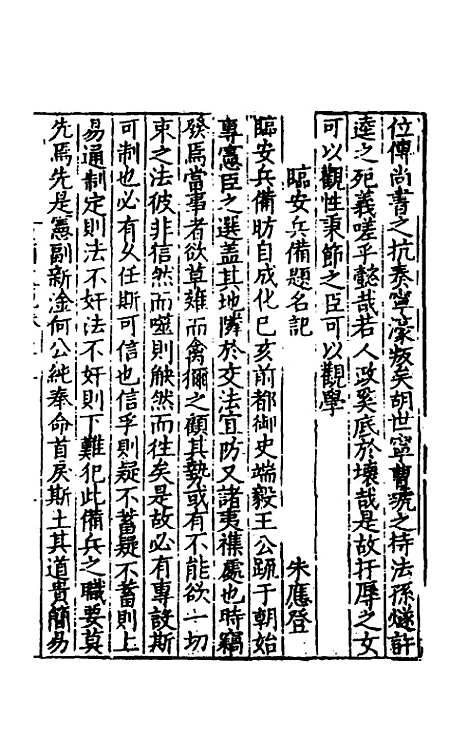 位傅尚書之抗泰寧濠叛矣胡世寧曹琥之持法孫燧許
逵之死義嗟乎懿哉若人政奚底於壞哉是故抂辱之女
可以觀性秉節之臣可以觀學
臨安兵備題名記 朱應登
臨安兵備昉自成化已亥前都御史端毅王公䟽于朝始
專憲臣之選蓋其地隣於交法宜防又諸夷襍處也時竊
發焉當事者欲草薙而禽獮之顧其埶或有不能欲一切
束之法彼非信然而噬則觖然而往矣是故必有專設斯
可制也必有久任斯可信也信孚則疑不蓄疑不蓄則上
易通制定則法不奸法不奸則下難犯此備兵之職要莫
先焉先是憲副新淦何公純奉命首戾斯土其道貴簡易